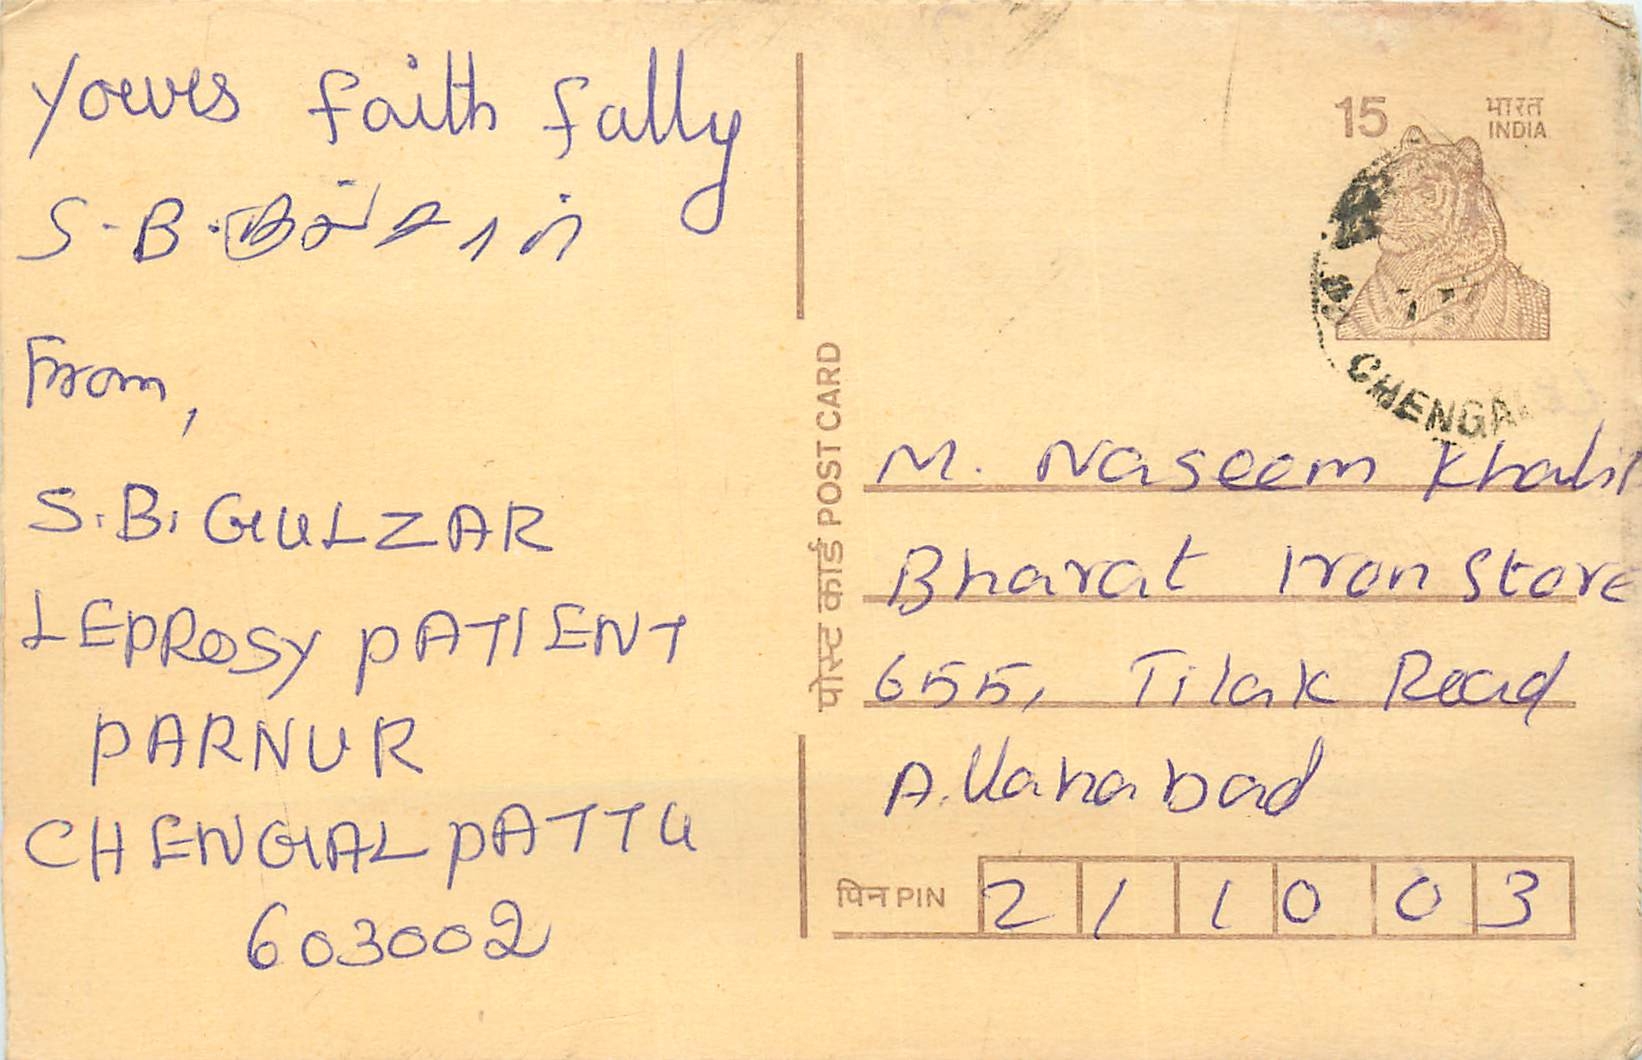 yours faith fally
S.B.
From,
S.B. GULZAR
LEPROSY PATIENT
PARNUR
CHENGALPATTU
603002
पोस्ट कार्ड POST CARD
15
भारत
INDIA
CHENGA
M. Naseem Khalil
Bharat Iron Store
655, Tilak Road
Allahabad
पिन PIN 211003